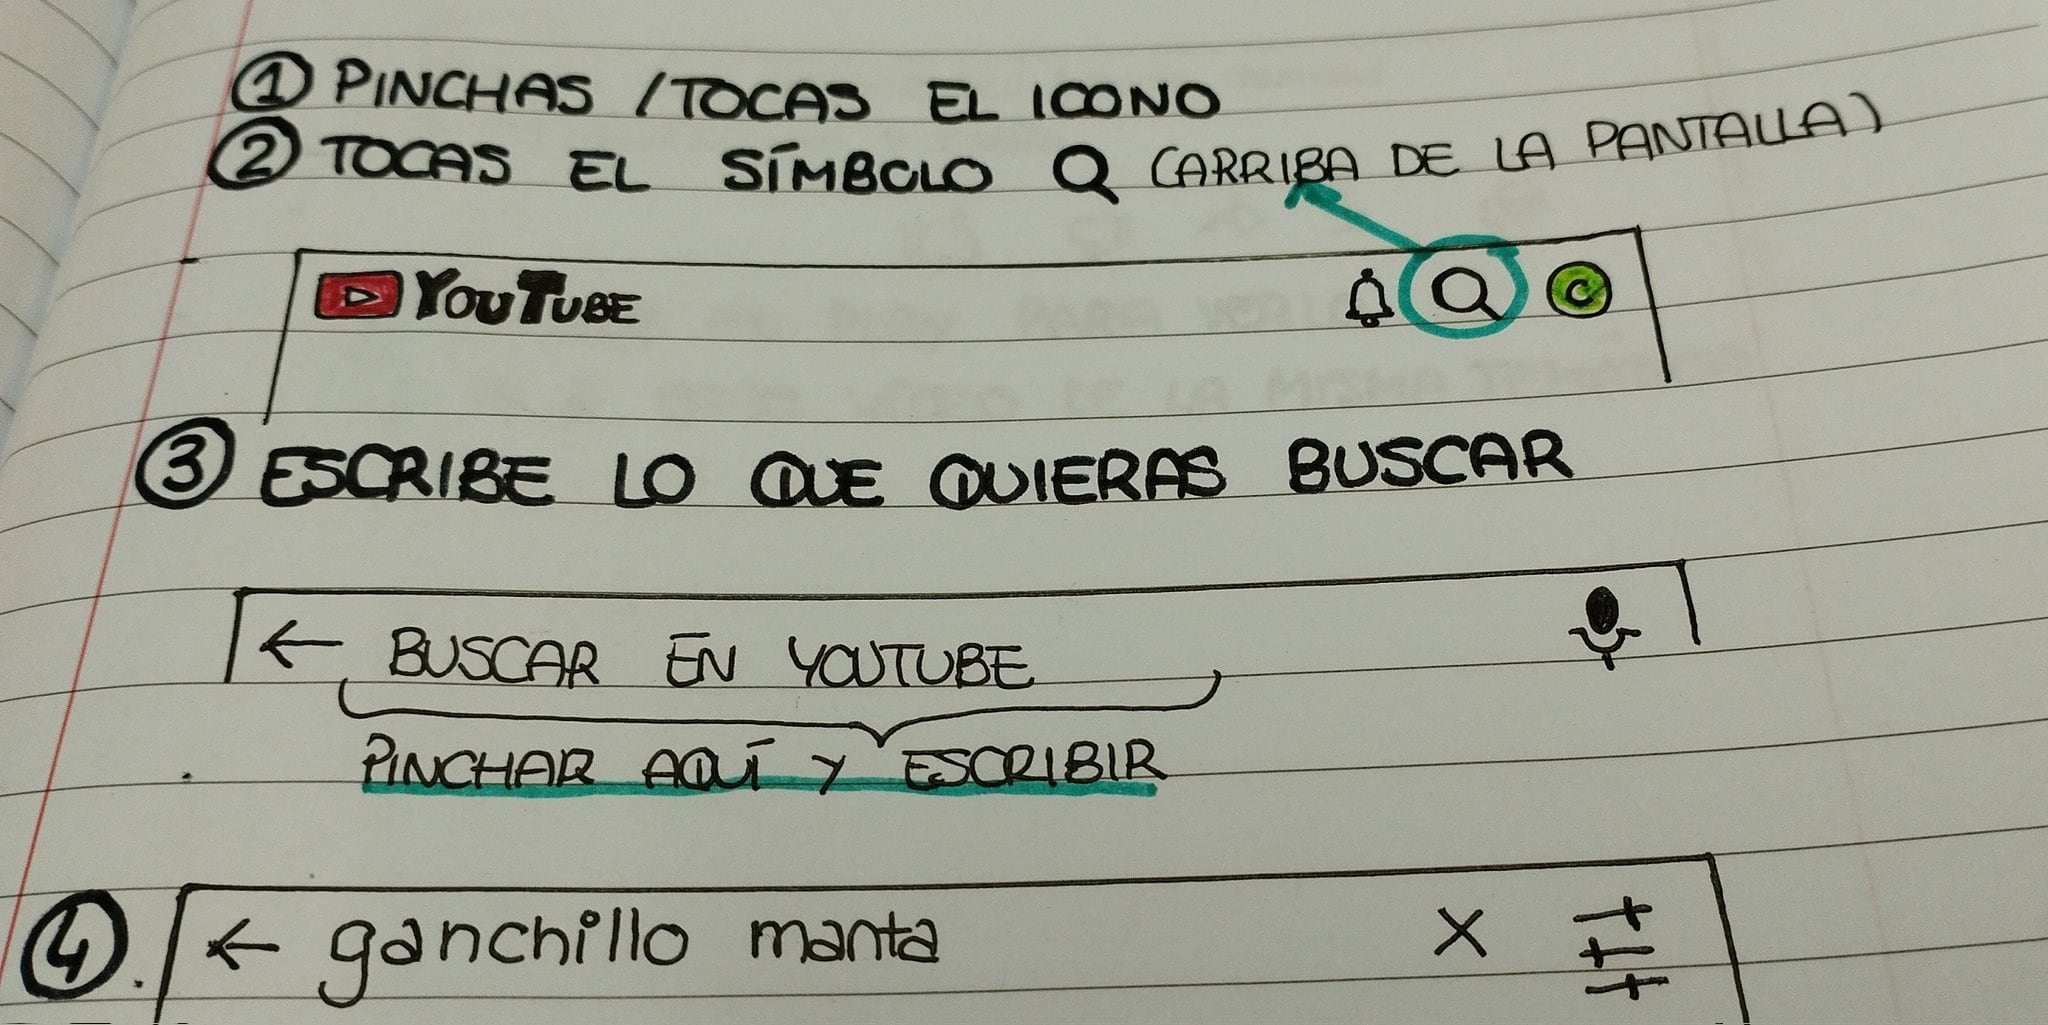 ① PINCHAS / TOCAS EL ICONO
② TOCAS EL SÍMBOLO (ARRIBA DE LA PANTALLA)
YOUTUBE C
③ ESCRIBE LO QUE QUIERAS BUSCAR
← BUSCAR EN YOUTUBE
PINCHAR AQUÍ Y ESCRIBIR
④. ← ganchillo manta X